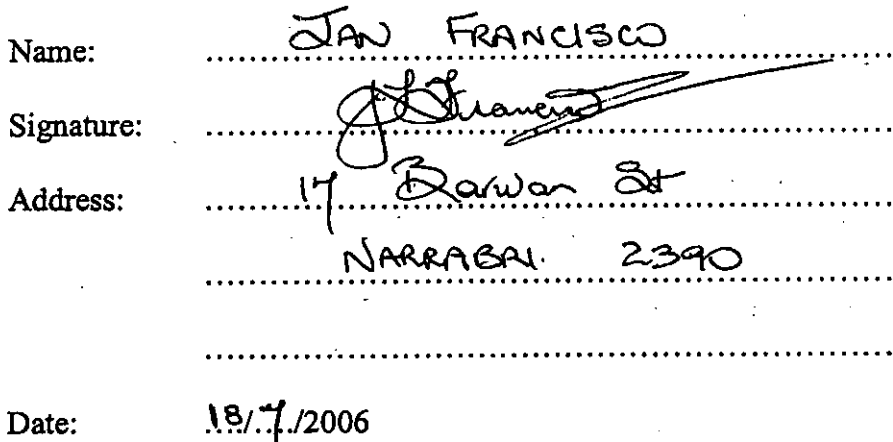 Name: JAN FRANCISCO
Signature: J L Francisco
Address: 17 Barwan St
NARRABRI. 2390
Date: 18/7/2006